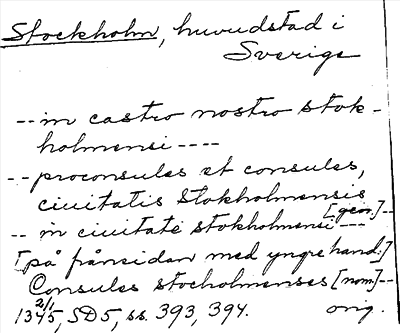 Stockholm, huvudstad i
Sverige
-- in castro nostro stok-
holmensi ----
-- proconsules et consules,
ciuitatis Stokholmensis
[gen.]--
-- in ciuitate stokholmensi ---
[på frånsidan med yngre hand:]
Consules stocholmenses [nom.]--
2/1
1345, SD5, ss. 393, 394. orig.